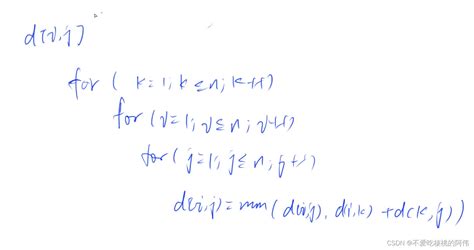 d[i,j]
for ( k=1; k≤n; k++)
for (i=1; i≤n; i++)
for (j=1; j≤n; j++)
d(i,j)=min(d(i,j), d(i,k)+d(k,j))
CSDN @不爱吃核桃的阿伟